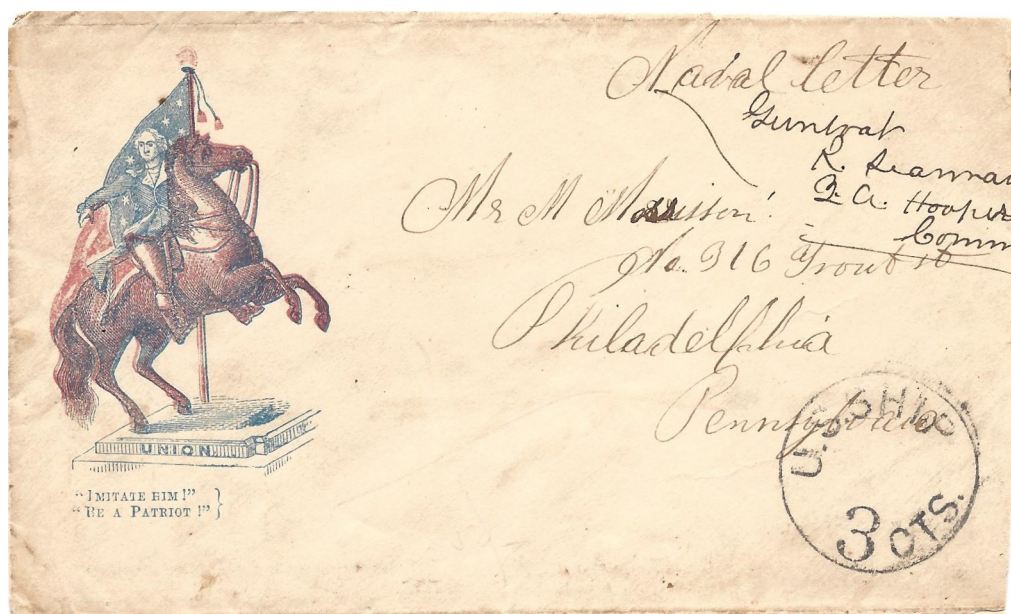 Naval letter
Gunboat
Q. A. Hooper
Comm
Mr M Morrison
No. 316 Front st
Philadelphia
Pennsylvania
U.S. SHIP
3 CTS.
UNION
"IMITATE HIM!"
"BE A PATRIOT!"